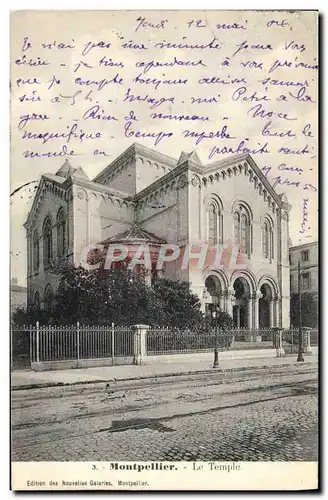 Jeudi 12 mai 04
Je n'ai pas une minute pour vous
écrire - je tiens cependant à vous prévenir
que je compte toujours arriver samedi
soir à 5h.
gare Rien de nouveau -
magnifique Temps superbe Tout le
monde va parfait
CAPRHIA
3. - Montpellier. - Le Temple
Edition des Nouvelles Galeries, Montpellier.